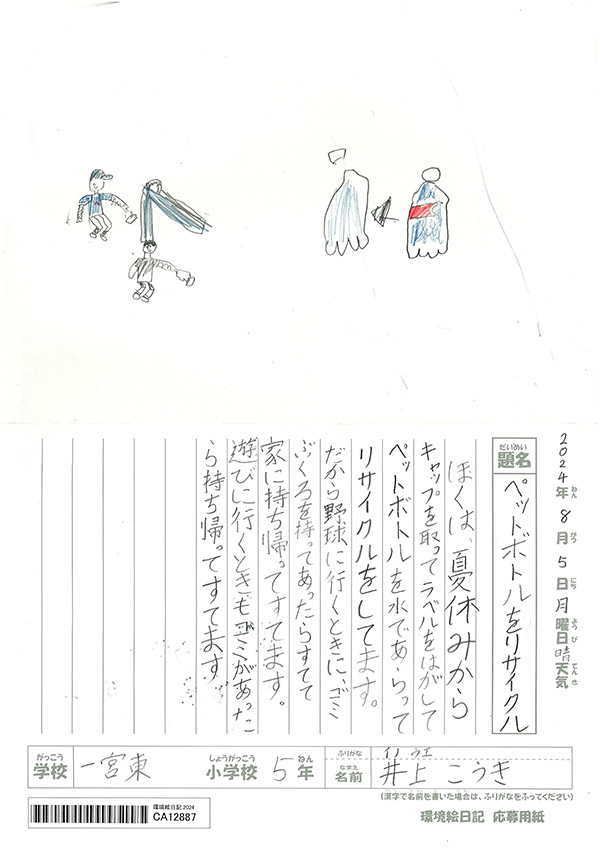 2024年ねん 8月がつ 5日にち 月曜日ようび 晴天気てんき
だいめい
題名
ペットボトルをリサイクル
ぼくは、夏休みから
キャップを取ってラベルをはがして
ペットボトルを水であらって
リサイクルをしてます。
だから野球に行くときに、ゴミ
ぶくろを持ってあったらすてて
家に持ち帰ってすてます。
遊びに行くときもゴミがあった
ら持ち帰ってすてます。
がっこう しょうがっこう ねん ふりがな イノ ウエ
学校 一宮東 小学校 5年 なまえ 名前 井上 こうき
(漢字で名前を書いた場合は、ふりがなをふってください)
環境絵日記 2024
CA12887
環境絵日記 応募用紙